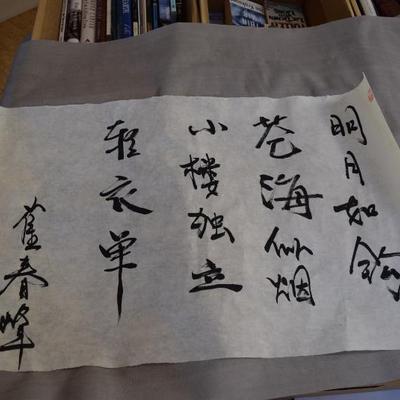 明月如
苍海似烟
小楼独立
轻衣单
春